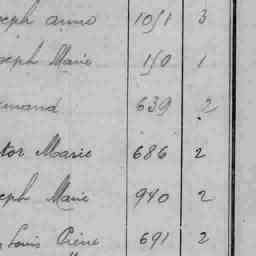 seph anno 1051 3
oseph Marie 150 1
emand 639 2
tor Marie 686 2
seph Marie 940 2
Louis Pierre 691 2